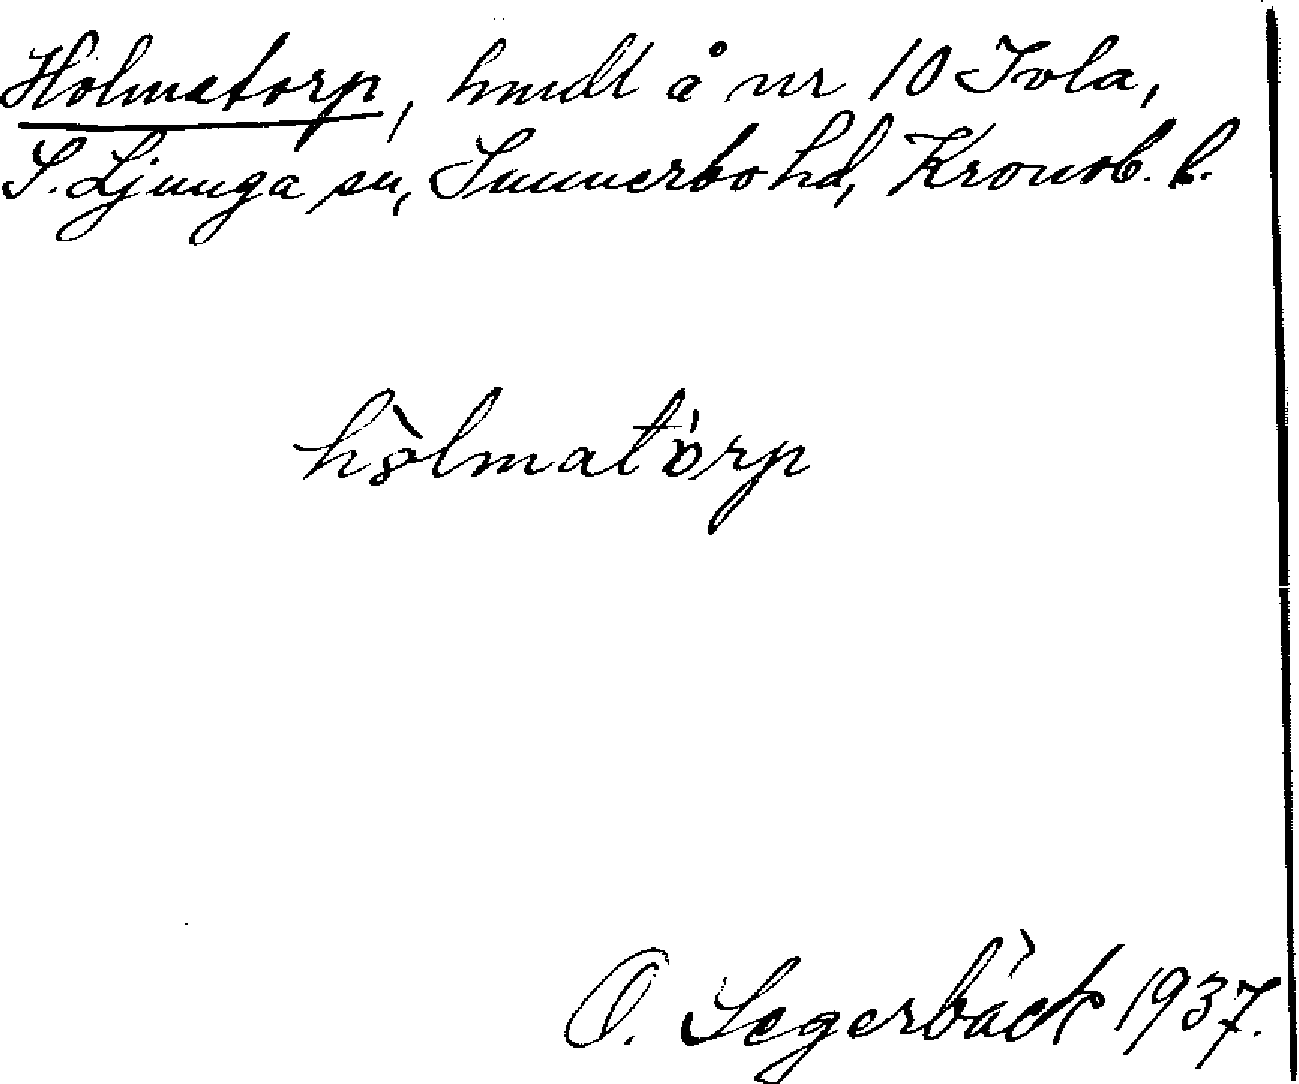 Holmatorp, hmdt å nr 10 Ivla,
S. Ljunga sn, Sunnerbo hd, Kronob. l.
hòlmatòrp
O. Segerbäck 1937.